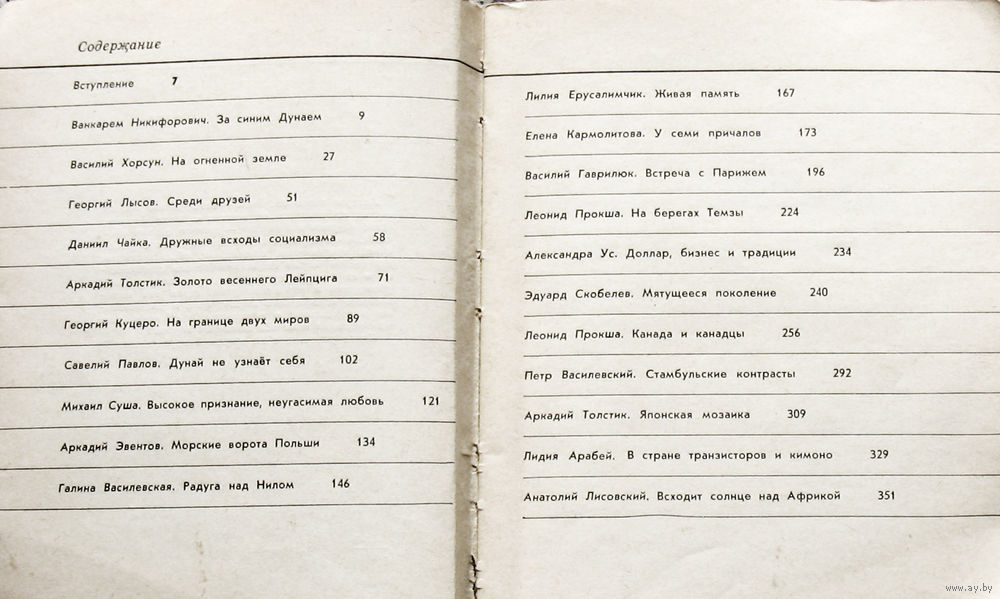 Содержание
Вступление 7
Ванкарем Никифорович. За синим Дунаем 9
Василий Хорсун. На огненной земле 27
Георгий Лысов. Среди друзей 51
Даниил Чайка. Дружные всходы социализма 58
Аркадий Толстик. Золото весеннего Лейпцига 71
Георгий Куцеро. На границе двух миров 89
Савелий Павлов. Дунай не узнаёт себя 102
Михаил Суша. Высокое признание, неугасимая любовь 121
Аркадий Эвентов. Морские ворота Польши 134
Галина Василевская. Радуга над Нилом 146
Лилия Ерусалимчик. Живая память 167
Елена Кармолитова. У семи причалов 173
Василий Гаврилюк. Встреча с Парижем 196
Леонид Прокша. На берегах Темзы 224
Александра Ус. Доллар, бизнес и традиции 234
Эдуард Скобелев. Мятущееся поколение 240
Леонид Прокша. Канада и канадцы 256
Петр Василевский. Стамбульские контрасты 292
Аркадий Толстик. Японская мозаика 309
Лидия Арабей. В стране транзисторов и кимоно 329
Анатолий Лисовский. Всходит солнце над Африкой 351
www.ay.by